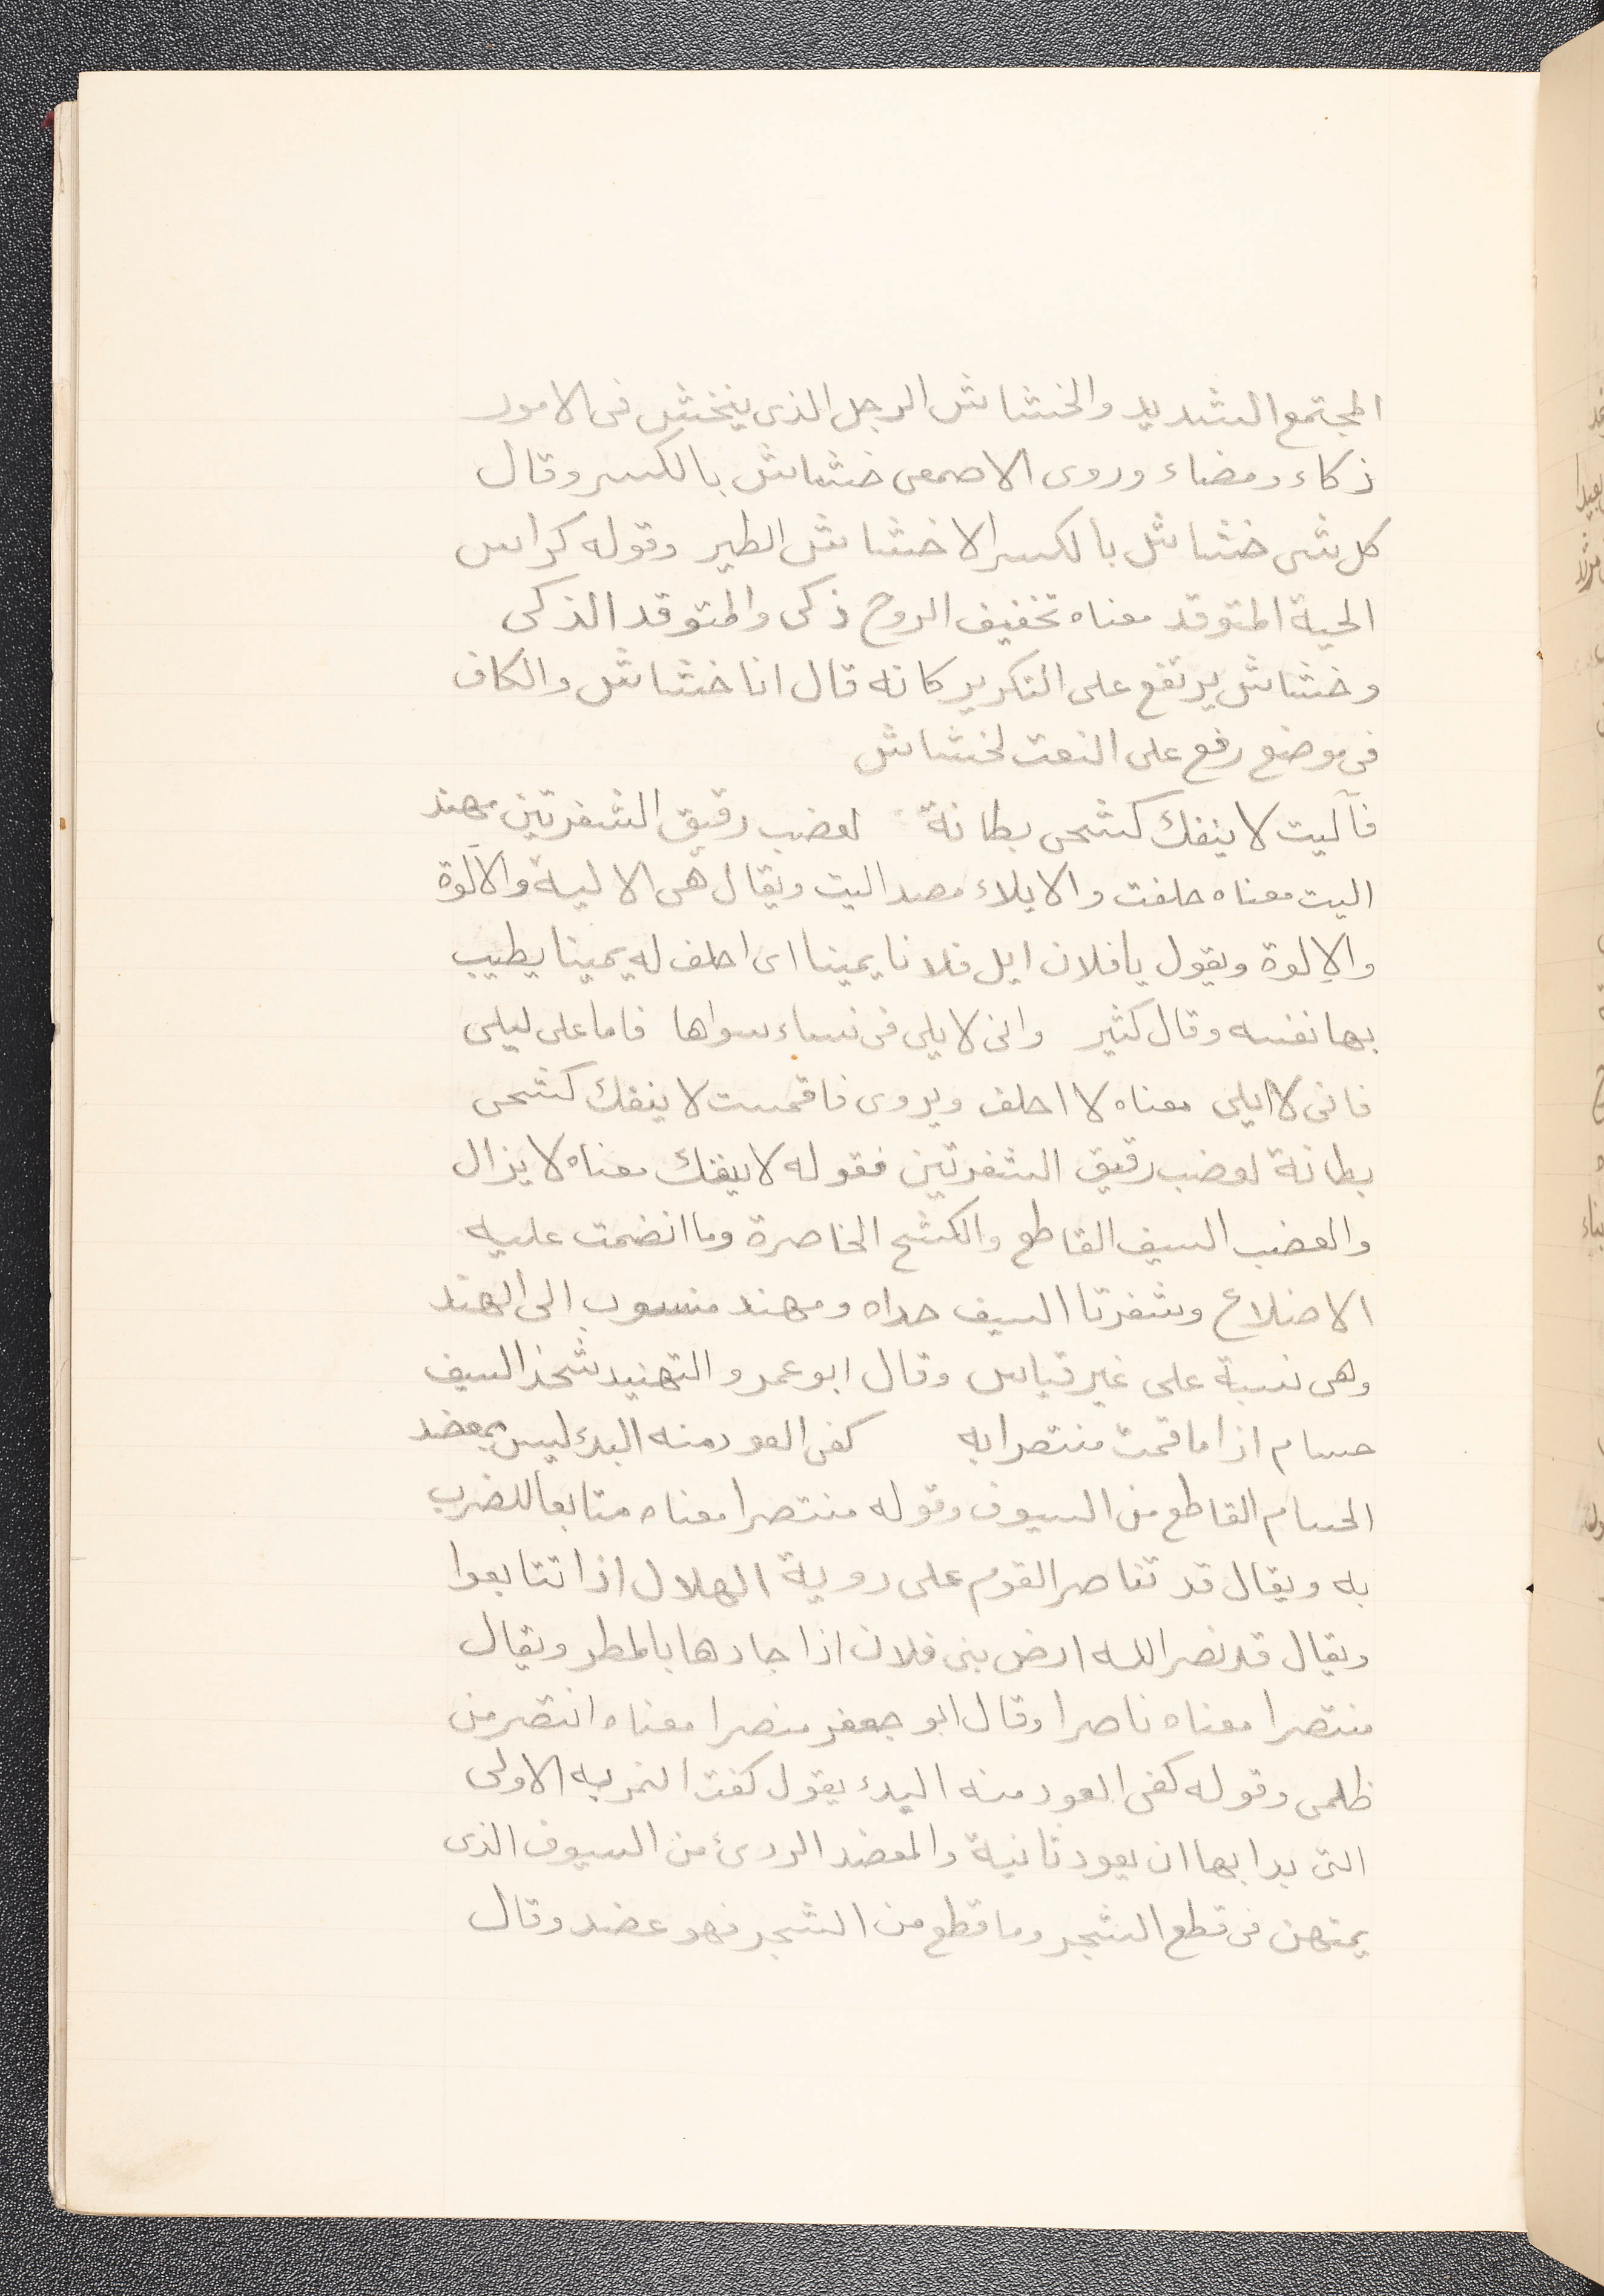 المجتمع الشديد والخشاش الرجل الذى ينخش فى الامور
ذكاء ومضاء وروى الاصمعى خشاش بالكسر وقال
كل شى خشاش بالكسر الا خشاش الطير وقوله كراس
الحية المتوقد معناه تخفيف الروح ذكى والمتوقد الذكى
وخشاش يرتفع على التكرير كانه قال انا خشاش والكاف
فى موضع رفع على النعت لخشاش
فآليت لا ينفك كشحى بطانة لعضب رقيق الشفرتين مهند
اليت معناه حلفت والايلاء مصد اليت ويقال هى الالية والالوة
والإلوة ويقول يا فلان ايل فلانا يمينا اى احلف له يمينا يطيب
بها نفسه وقال كثير وانى لا يلى فى نساء سواها فاما على ليلى
فانى لا ايلى معناه لا احلف ويروى فاقمست لا ينفك كشحى
بطانة لعضب رقيق الشفرتين فقوله لا ينفك معناه لا يزال
والعضب السيف القاطع والكشح الخاصرة وما انضمت عليه
الاضلاع وشفرتا السيف حداه ومهند منسوب الى الهند
وهى نسبة على غير قياس وقال ابو عمرو التهنيد شحذ السيف
حسام اذا ما قمت منتصرا به كفى العود منه البدء ليس بمعضد
الحسام القاطع من السيوف وقوله منتصرا معناه متابعا للضرب
به ويقال قد تناصر القوم على روية الهلال اذا تتابعوا
ويقال قد نصر الله ارض بنى فلان اذا جادها بالمطر ويقال
منتصرا معناه ناصرا وقال ابو جعفر منصرا معناه انتصر من
ظلمى وقوله كفى العود منه البدء يقول كفت الضربه الاولى
التى بدا بها ان يعود ثانية والمعضد الردئ من السيوف الذى
يمتهن فى قطع الشجر وما قطع من الشجر فهو عضد وقال